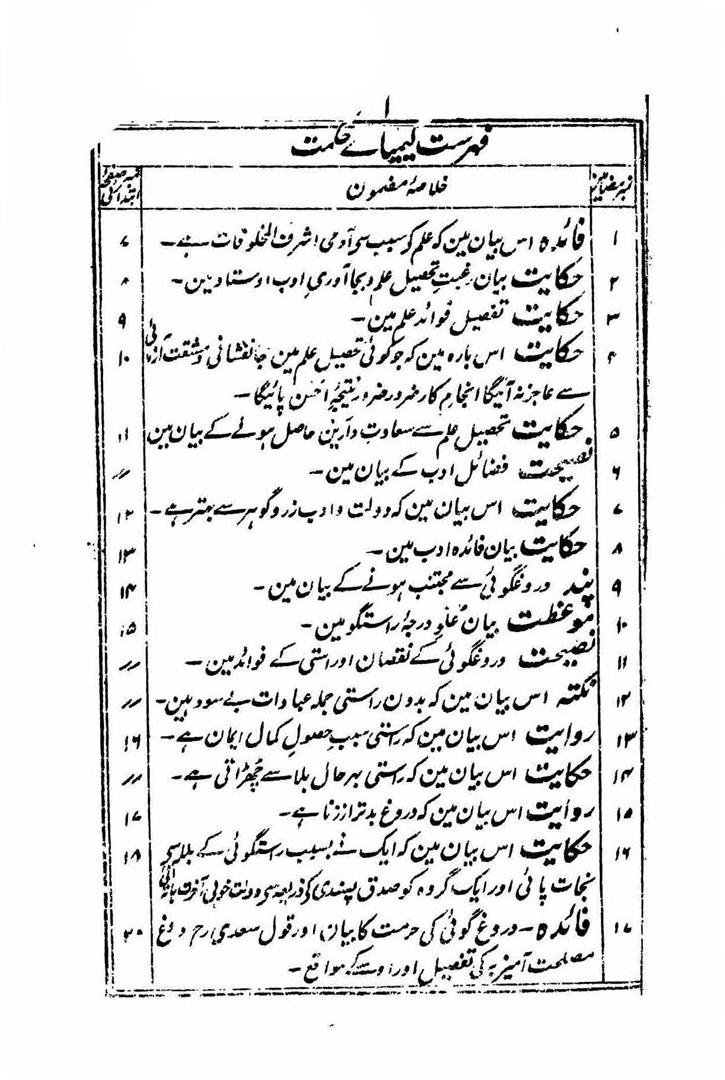 ۱
فہرست کیمیائے حکمت
نمبر مضامین خلاصۂ مضمون نمبر صفحہ ابتدائی
۱ فائدہ اس بیان مین کہ علم کو سبب سی آدمی اشرف المخلوقات ہے۔ ۷
۲ حکایت بیان رغبت تحصیل علم و بجا آوری ادب اوستاد مین۔ ۸
۳ حکایت تفصیل فوائد علم مین۔ ۹
۴ حکایت اس بارہ مین کہ جو کوئی تحصیل علم مین جانفشانی و مشقت آزمائی ۱۰
سے عاجز نہ آئیگا انجام کار ضرور ضرور نتیجۂ احسن پائیگا۔
۵ حکایت تحصیل علم سے سعادت دارین حاصل ہونے کے بیان مین ۱۱
۶ نصیحت فضائل ادب کے بیان مین۔ //
۷ حکایت اس بیان مین کہ دولت و ادب زر و گوہر سے بہتر ہے۔ ۱۲
۸ حکایت بیان فائدہ ادب مین۔ ۱۳
۹ پند دروغگوئی سے مجتنب ہونے کے بیان مین۔ ۱۴
۱۰ موعظت بیان علو درجۂ راستگو مین۔ ۱۵
۱۱ نصیحت دروغگوئی کے نقصان اور راستی کے فوائد مین۔ //
۱۲ نکتہ اس بیان مین کہ بدون راستی جملہ عبادات بے سود ہین۔ //
۱۳ روایت اس بیان مین کہ راستی سبب حصول کمال ایمان ہے۔ ۱۶
۱۴ حکایت اس بیان مین کہ راستی بہر حال بلا سے چُھڑاتی ہے۔ //
۱۵ روایت اس بیان مین کہ دروغ بدتر از زنا ہے۔ ۱۷
۱۶ حکایت اس بیان مین کہ ایک نے بسبب راستگوئی کے بلا سی ۱۸
نجات پائی اور ایک گروہ کو صدق پسندی کی ذریعہ سی دولت خوبی آخرت
۱۷ فائدہ۔ دروغ گوئی کی حرمت کا بیان اور قول سعدی رح دروغ ۲۰
مصلحت آمیز بہ کی تفصیل اور اوسکے مواقع۔